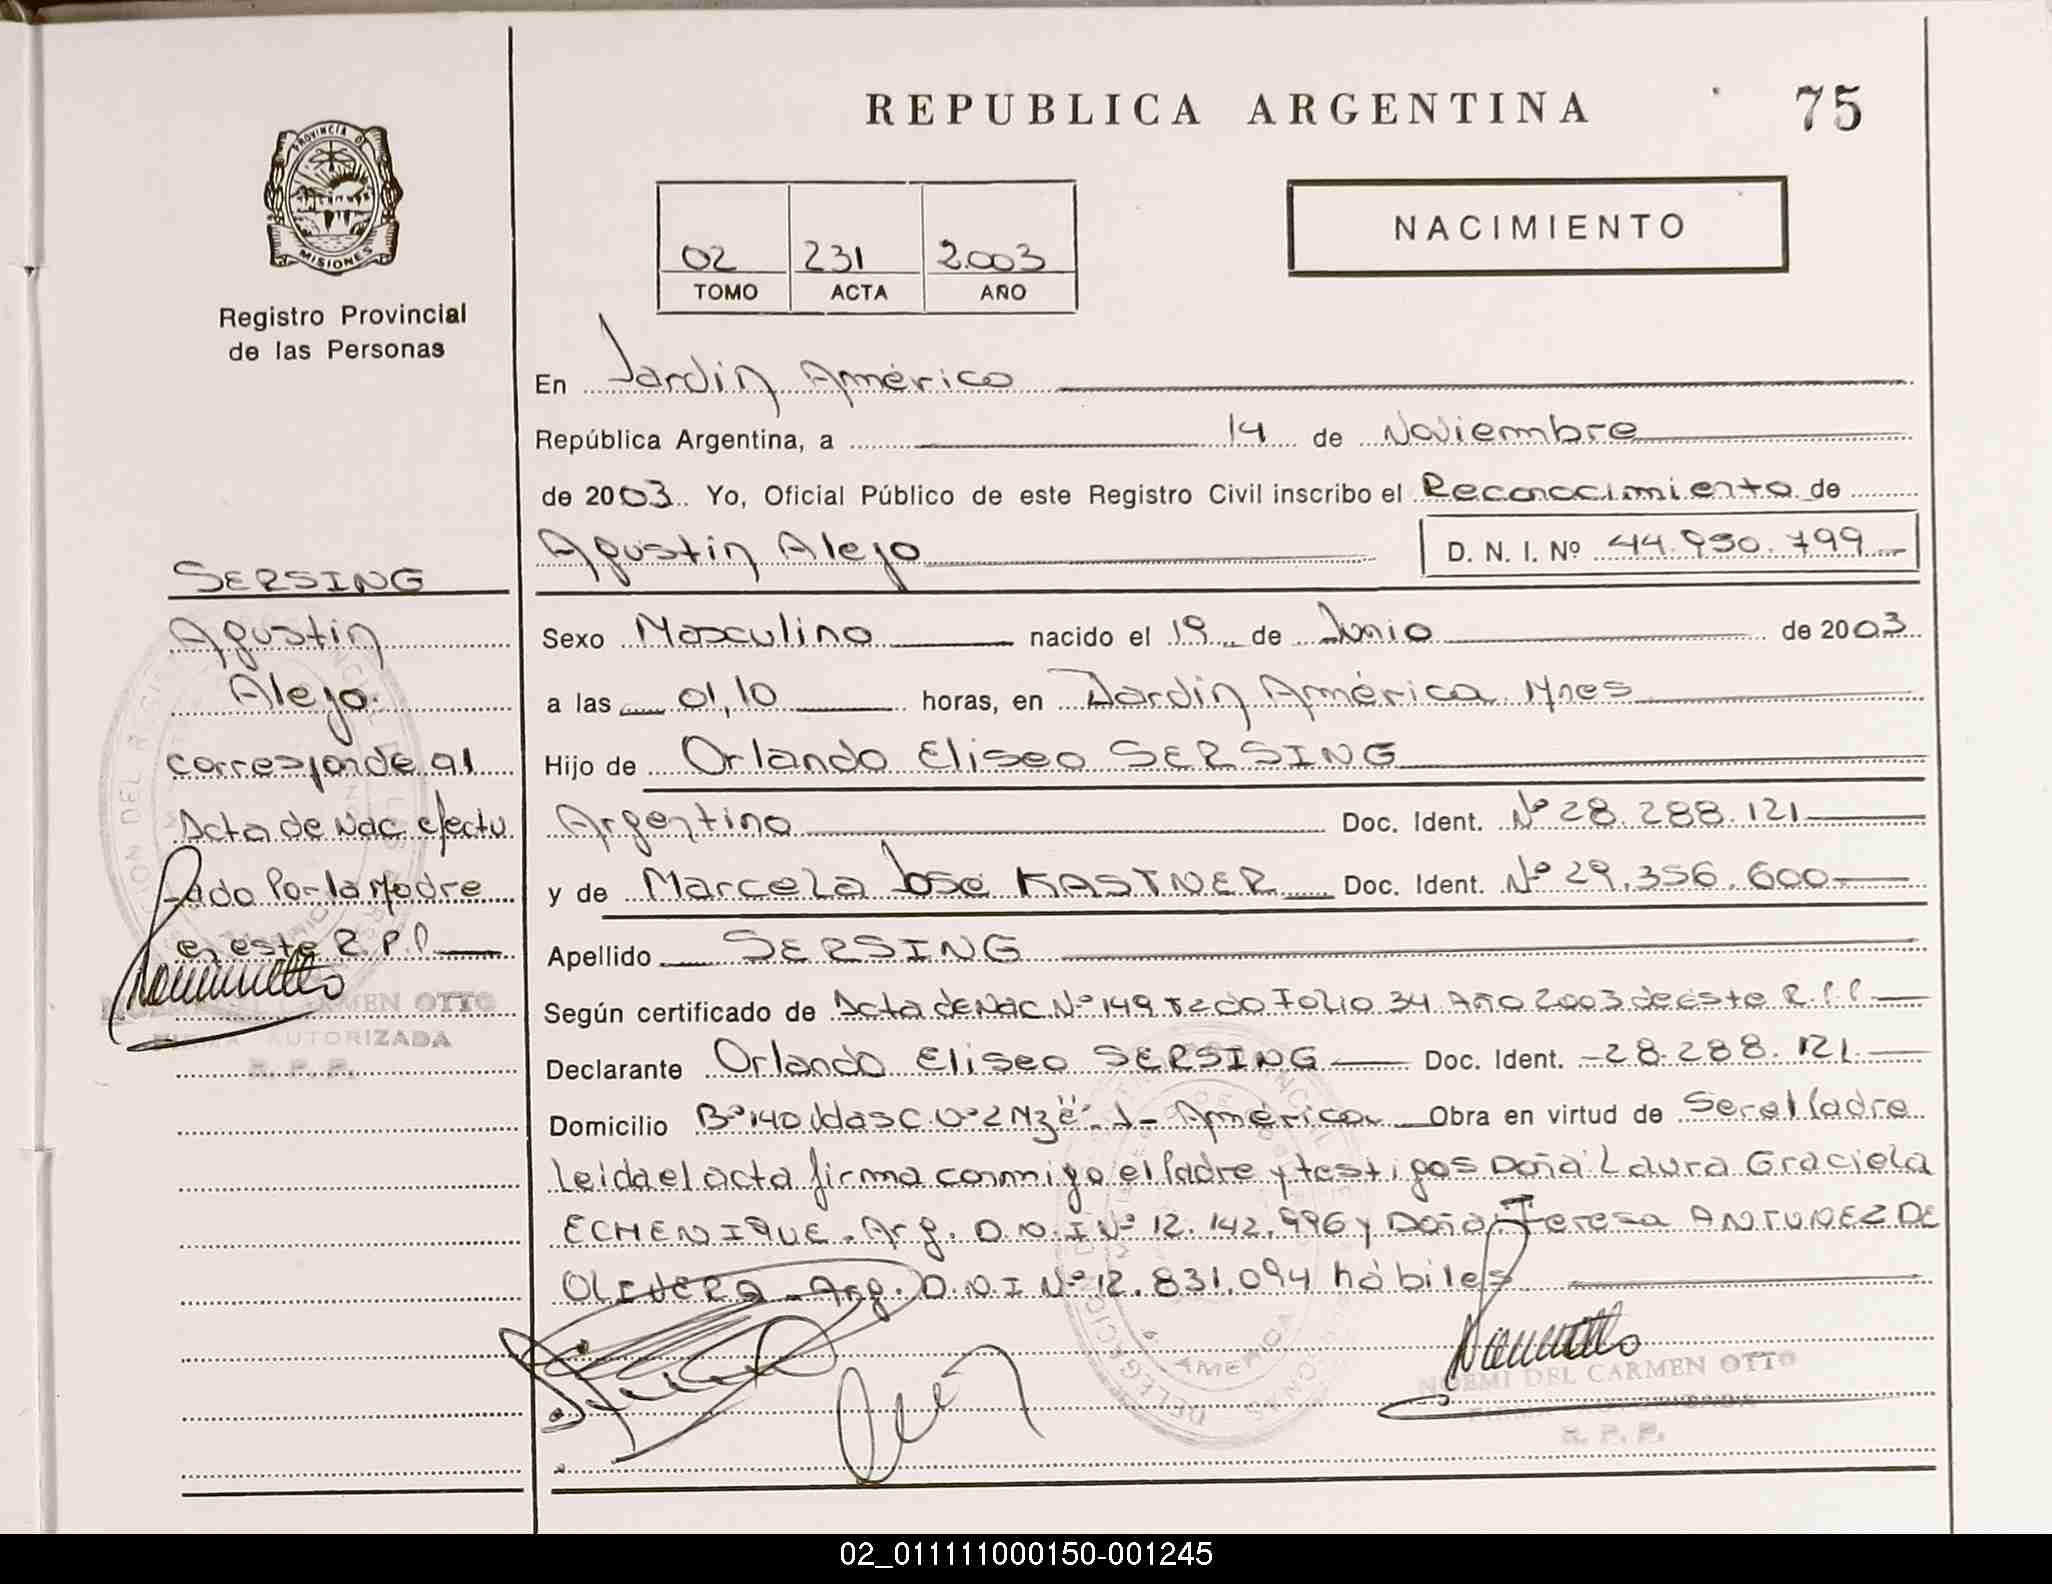 REPUBLICA ARGENTINA
75
PROVINCIA D
MISIONES
Registro Provincial
de las Personas
NACIMIENTO
02 231 2.003
TOMO ACTA AÑO
En Jardín América
República Argentina, a 14 de Noviembre
de 2003 Yo, Oficial Público de este Registro Civil inscribo el Reconocimiento de
Agustín Alejo D. N. I. Nº 44.950.799
Sexo Masculino nacido el 19 de Junio de 2003
a las 01,10 horas, en Jardín América Mnes
Hijo de Orlando Eliseo SERSING
Argentino Doc. Ident. Nº 28.288.121
y de Marcela José KASTNER Doc. Ident. Nº 29.356.600
Apellido SERSING
Según certificado de Acta de Nac. Nº 149 Folio 34 Año 2003 de este R.P.P.
Declarante Orlando Eliseo SERSING Doc. Ident. 28.288.121
Domicilio Bº 140 C. Nº 2 Mz "E" J- América Obra en virtud de Ser el Padre
Leída el acta firma conmigo el Padre y testigos Doña Laura Graciela
ECHENIQUE. Arg. D.N.I Nº 12.142.996 y Doña Teresa ANTUNEZ DE
OLIVERA - Arg. D.N.I Nº 12.831.094 hábiles
SERSING
Agustín
Alejo.
corresponde al
Acta de Nac. efectu
ado Por la Madre
en este R.P.P.
CARMEN OTTO
AUTORIZADA
R. P. P.
NOEMI DEL CARMEN OTTO
R. P. P.
02_011111000150-001245